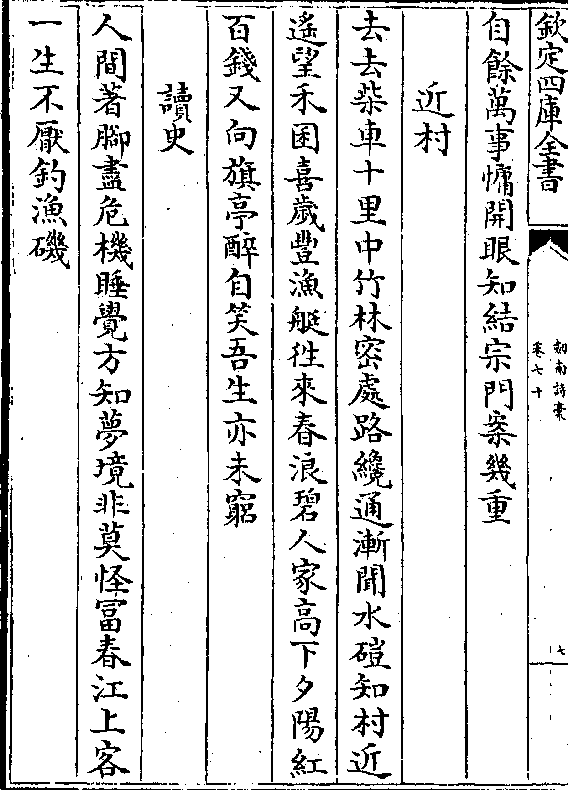 欽定四庫全書
劍南詩稾
卷七十
七
自餘萬事慵開眼知結宗門案幾重
近村
去去柴車十里中竹林密處路纔通漸聞水磑知村近
遙望禾囷喜歲豐漁艇徃來春浪碧人家高下夕陽紅
百錢又向旗亭醉自笑吾生亦未窮
讀史
人間著腳盡危機睡覺方知夢境非莫怪富春江上客
一生不厭釣漁磯